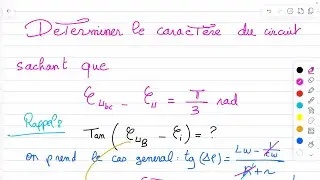 Determiner le caractère du circuit
sachant que
φ_{u_{bc}} - φ_u = π/3 rad
Rappel:
Tan ( φ_{u_B} - φ_i ) = ?
on prend le cas general: tg (Δφ) = (Lω - 1/cω) / (R + r)